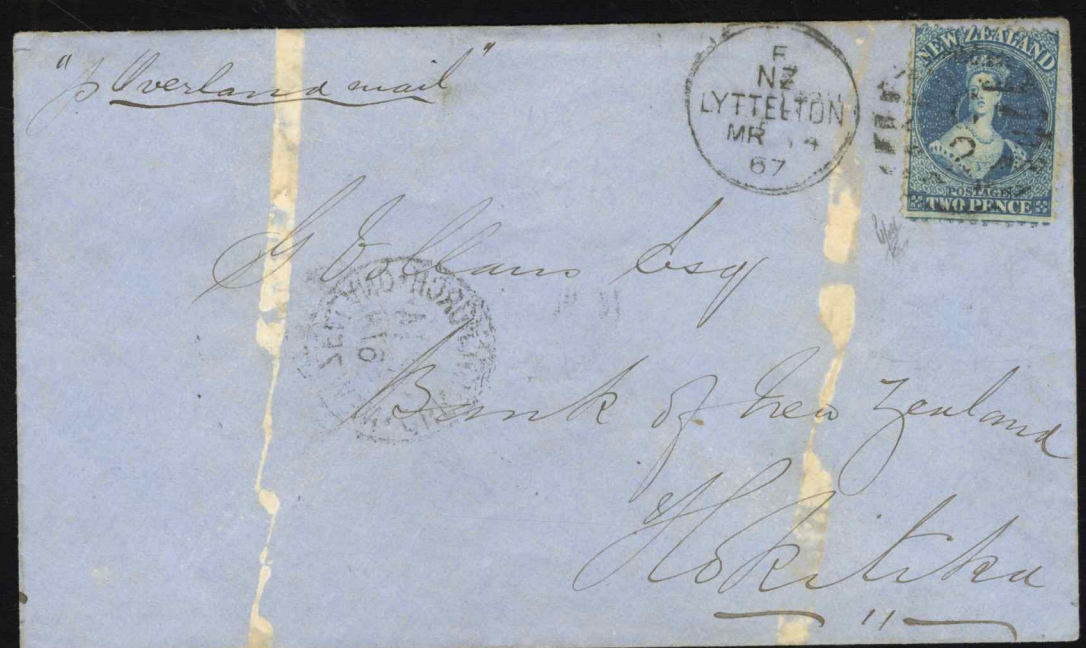 "p Overland mail"
F
NZ
LYTTELTON
MR 4
67
NEW ZEALAND
POSTAGE
TWO PENCE
G E Esqr
Bank of New Zealand
Hokitika
"